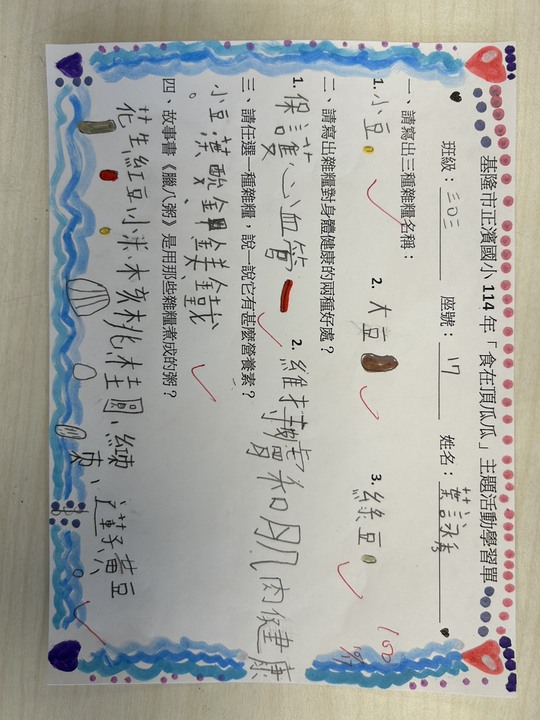 基隆市正濱國小 114 年「食在頂瓜瓜」主題活動學習單
班級：三〇三 座號：17 姓名：葉詠
一、請寫出三種雜糧名稱：
1.小豆 2.大豆 3.綠豆
二、請寫出雜糧對身體健康的兩種好處？
1.保護心血管 2.維持骨和肌肉健康
三、請任選一種雜糧，說一說它有甚麼營養素？
小豆：葉酸、鉀、鎂、鐵
四、故事書《臘八粥》是用那些雜糧煮成的粥？
花生紅豆小米核桃桂圓、紅棗、蓮子黃豆
100